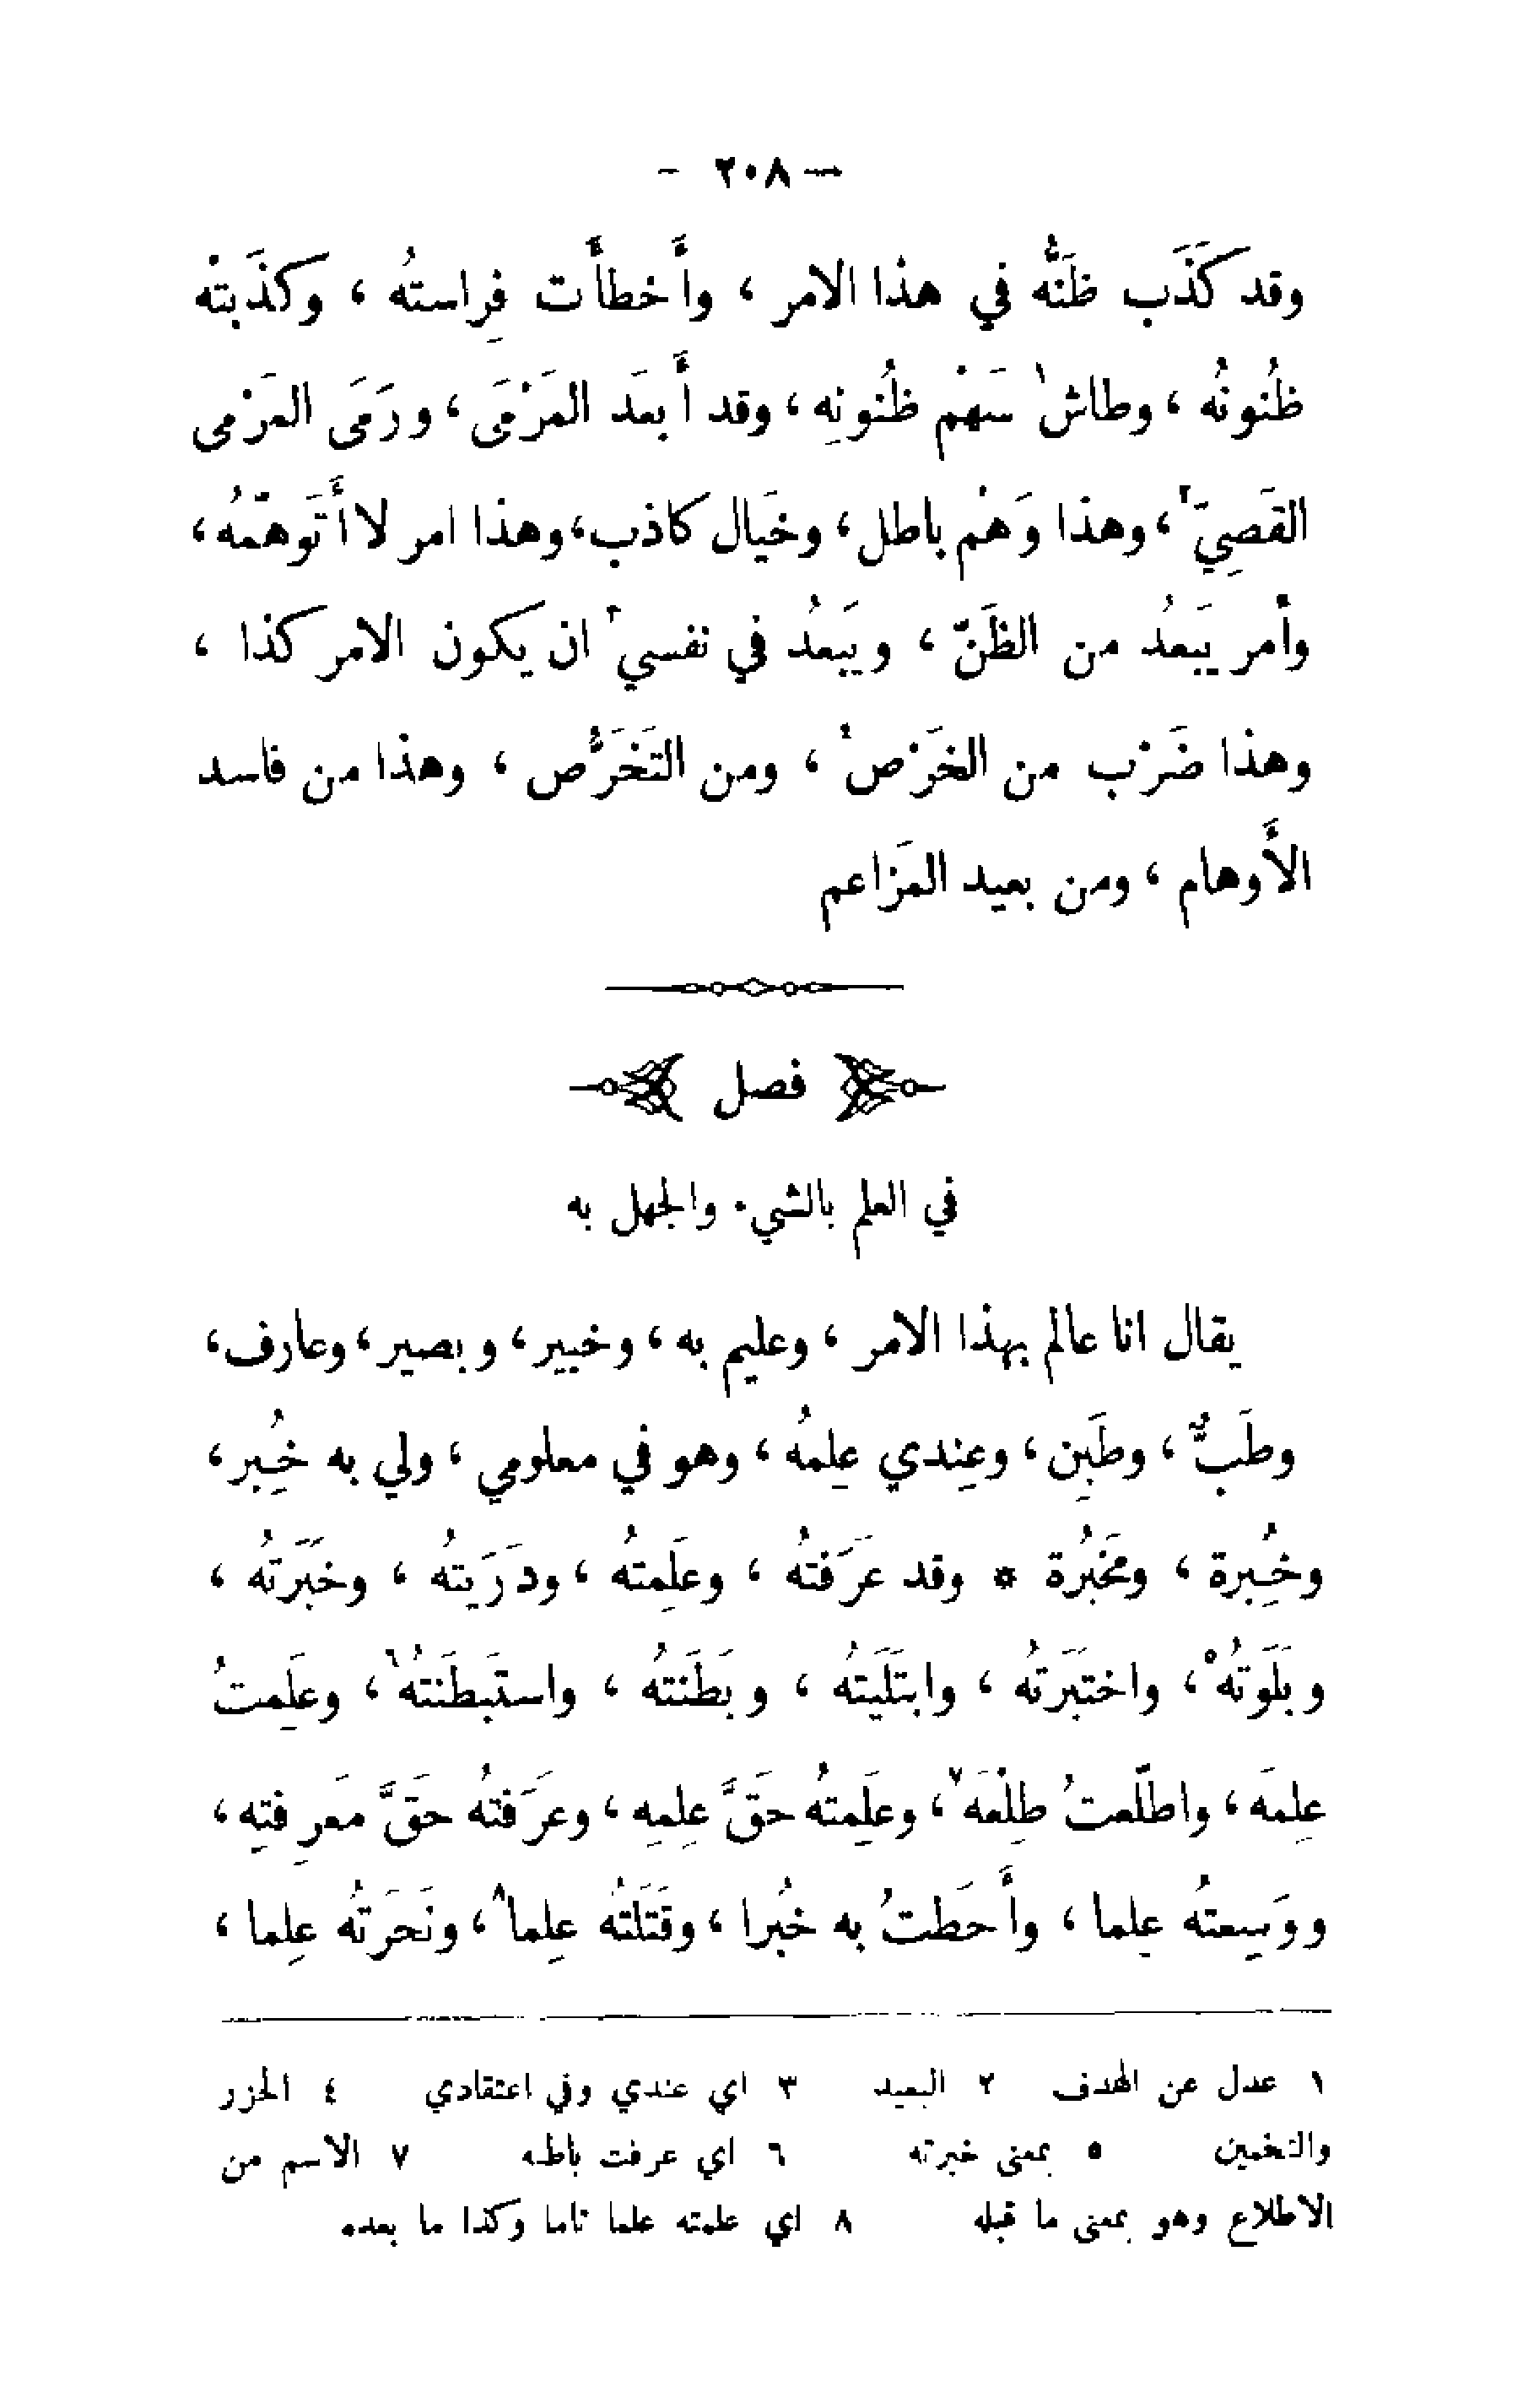 — ٢٠٨ -
وقد كَذَب ظَنُّه في هذا الامر ، وأَخطأَت فِراستهُ ، وكذَبتْه
ظُنونُه ، وطاش١ سَهْم ظُنونِه ، وقد أَبعَد المَرْمَى ، ورَمَى المَرْمى
القَصِيّ٢ ، وهذا وَهْم باطل ، وخَيال كاذب ، وهذا امر لا أَتَوهّمُه ،
وأمر يَبعدُ من الظَنّ ، ويَبعدُ في نفسي٣ ان يكون الامر كذا ،
وهذا ضَرْب من الخَرْص٤ ، ومن التَخَرُّص ، وهذا من فاسد
الأَوهام ، ومن بعيد المَزاعم
فصل
في العلم بالشيء والجهل به
يقال انا عالم بهذا الامر ، وعليم به ، وخبير ، وبصير ، وعارف ،
وطَبٌّ ، وطَبِن ، وعِندي عِلمهُ ، وهو في معلومي ، ولي به خُِبر ،
وخُِبرة ، ومَخبُرة * وقد عرَفتهُ ، وعلِمتهُ ، ودَرَيتهُ ، وخبَرتهُ ،
وبَلَوتهُ٥ ، واختبَرتهُ ، وابتلَيتهُ ، وبَطَنتهُ ، واستَبطَنتهُ٦ ، وعلِمتُ
عِلمَه ، واطلّعتُ طِلْعَه٧ ، وعلِمتهُ حَقَّ عِلمِه ، وعرَفتهُ حقَّ مَعرِفتِه ،
ووَسِعتهُ عِلما ، وأَحَطتُ به خُبرا ، وقَتَلتهُ عِلما٨ ، ونَحَرتهُ عِلما ،
١ عدل عن الهدف ٢ البعيد ٣ اي عندي وفي اعتقادي ٤ الحزر
والتخمين ٥ بمعنى خبرته ٦ اي عرفت باطنه ٧ الاسم من
الاطلاع وهو بمعنى ما قبله ٨ اي علمته علما تاما وكذا ما بعده